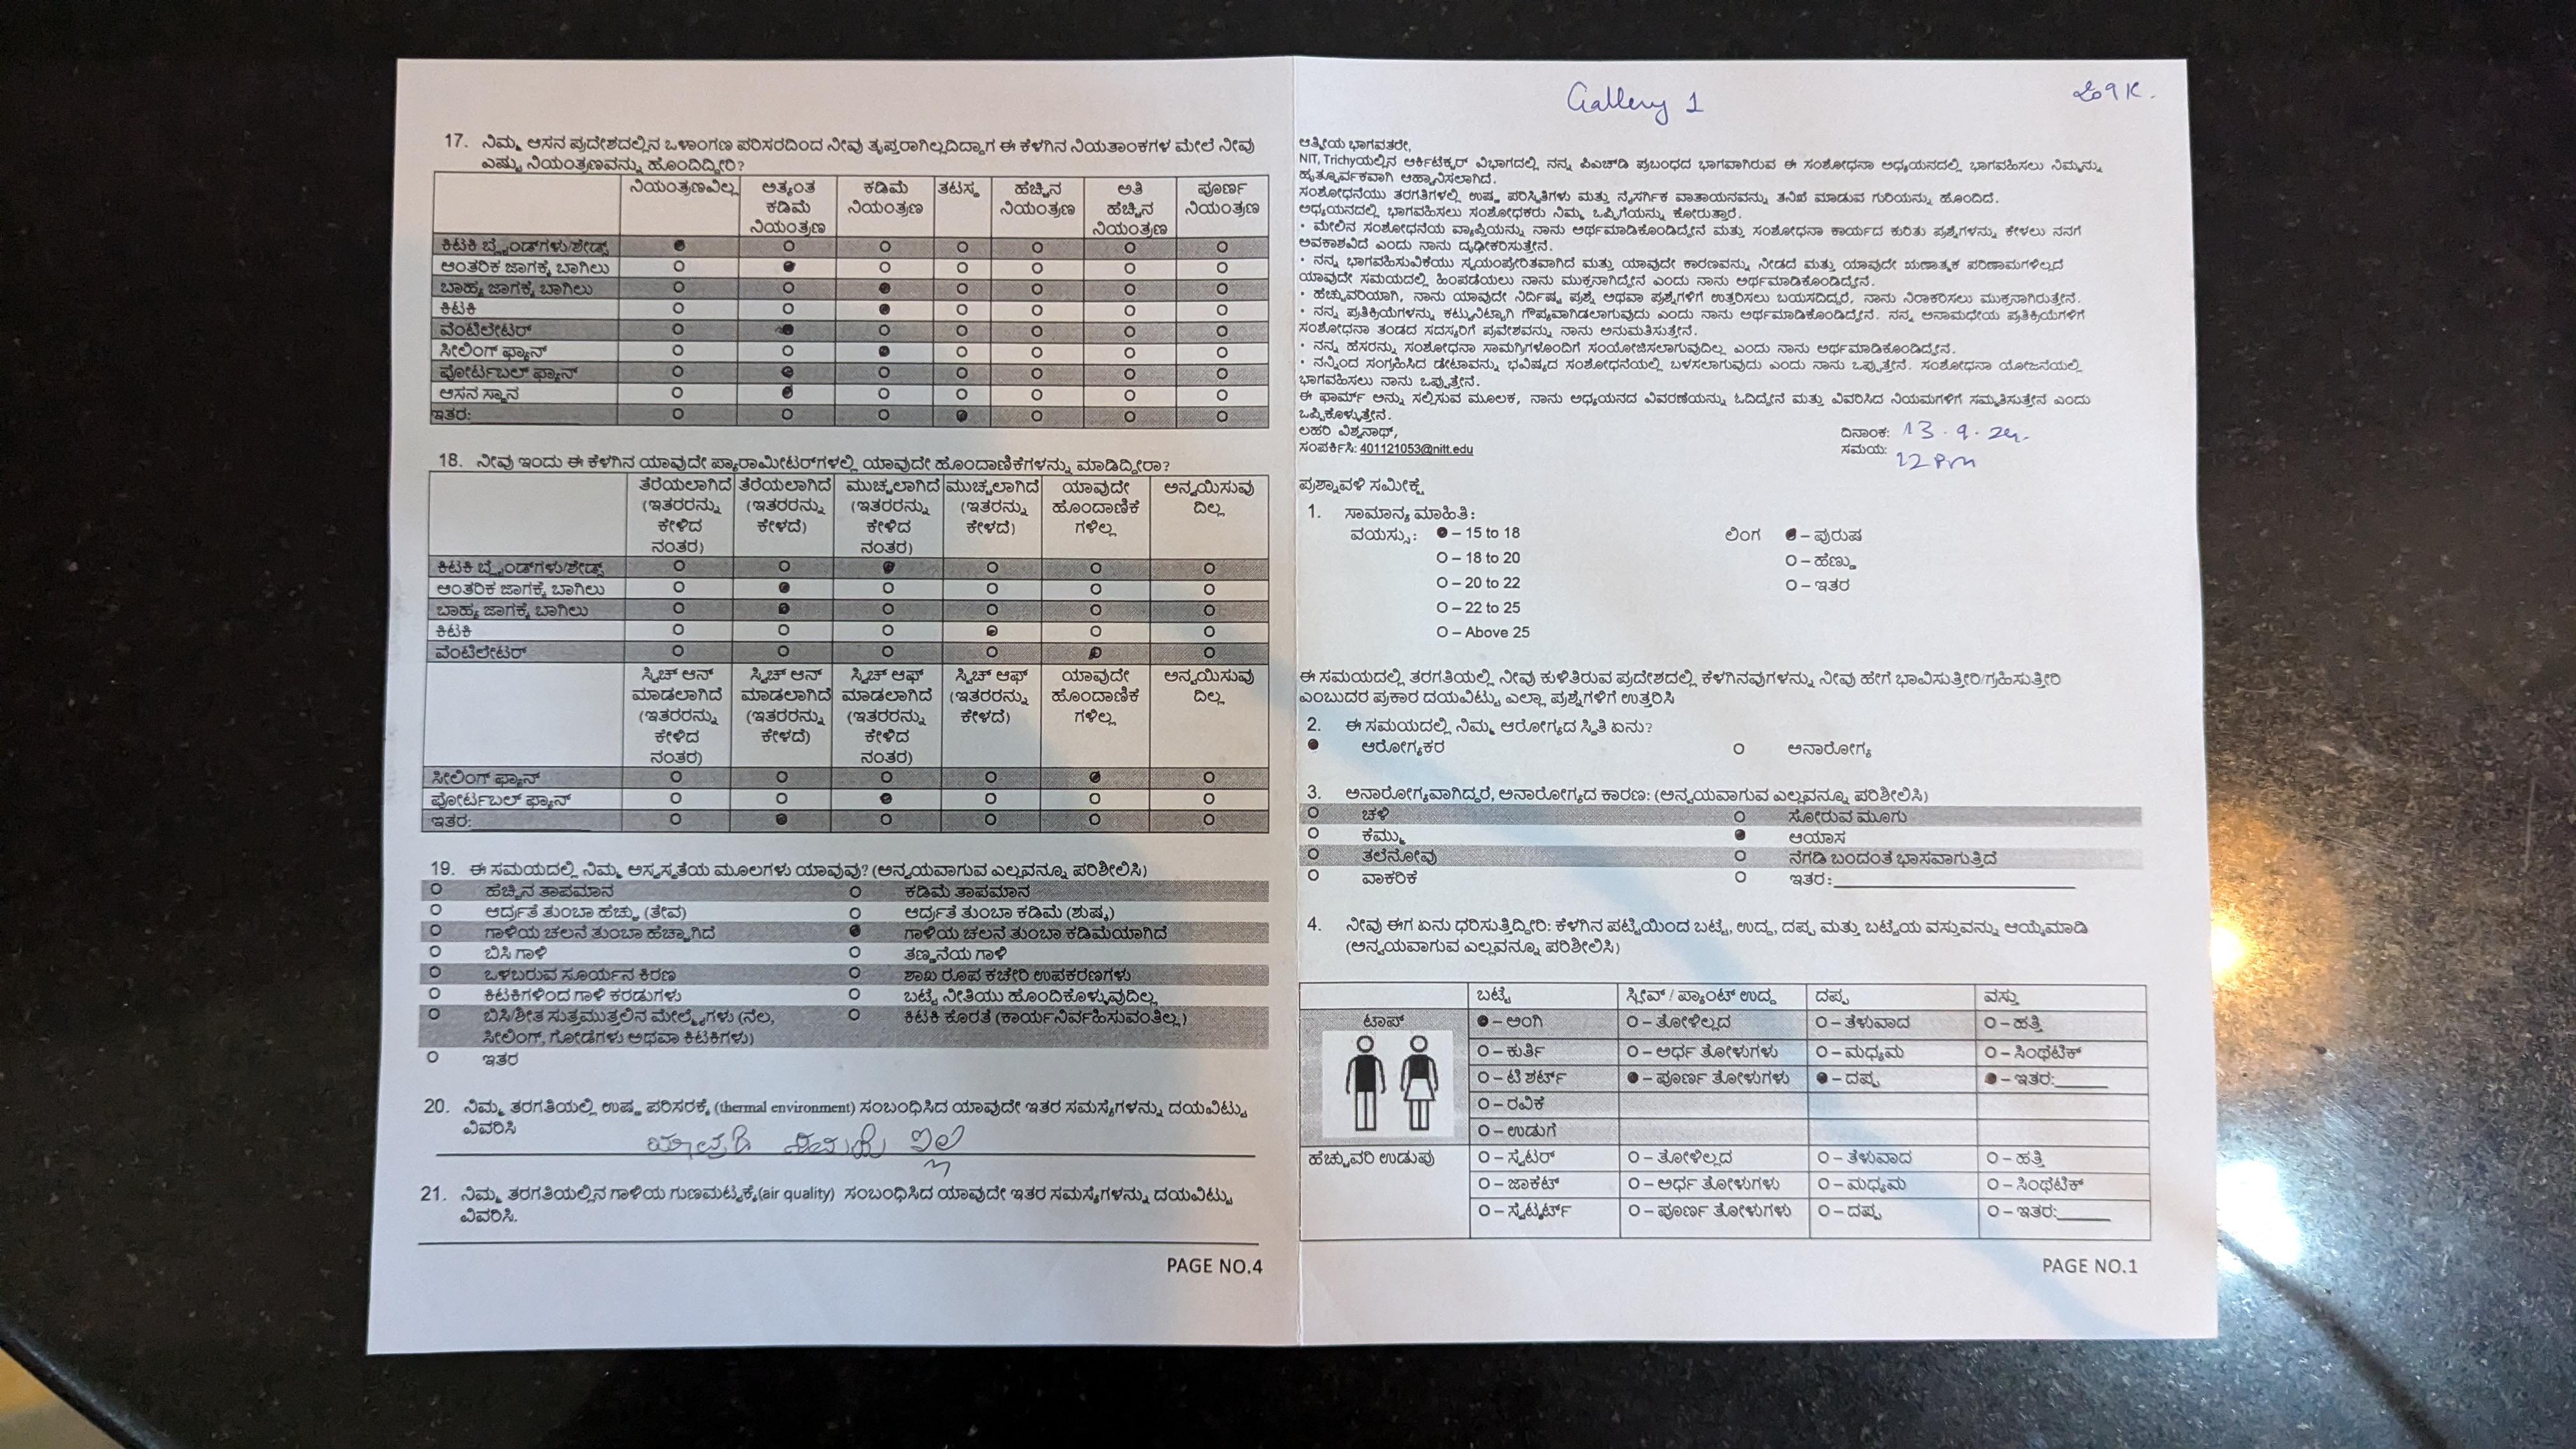 17. ನಿಮ್ಮ ಆಸನ ಪ್ರದೇಶದಲ್ಲಿನ ಒಳಾಂಗಣ ಪರಿಸರದಿಂದ ನೀವು ತೃಪ್ತರಾಗಿಲ್ಲದಿದ್ದಾಗ ಈ ಕೆಳಗಿನ ನಿಯತಾಂಕಗಳ ಮೇಲೆ ನೀವು
ಎಷ್ಟು ನಿಯಂತ್ರಣವನ್ನು ಹೊಂದಿದ್ದೀರಿ?
ನಿಯಂತ್ರಣವಿಲ್ಲ ಅತ್ಯಂತ ಕಡಿಮೆ ತಟಸ್ಥ ಹೆಚ್ಚಿನ ಅತಿ ಪೂರ್ಣ
ಕಡಿಮೆ ನಿಯಂತ್ರಣ ನಿಯಂತ್ರಣ ಹೆಚ್ಚಿನ ನಿಯಂತ್ರಣ
ನಿಯಂತ್ರಣ ನಿಯಂತ್ರಣ
ಕಿಟಕಿ ಬ್ಲೈಂಡ್‌ಗಳು/ಶೇಡ್ಸ್
ಆಂತರಿಕ ಜಾಗಕ್ಕೆ ಬಾಗಿಲು
ಬಾಹ್ಯ ಜಾಗಕ್ಕೆ ಬಾಗಿಲು
ಕಿಟಕಿ
ವೆಂಟಿಲೇಟರ್
ಸೀಲಿಂಗ್ ಫ್ಯಾನ್
ಪೋರ್ಟಬಲ್ ಫ್ಯಾನ್
ಆಸನ ಸ್ಥಾನ
ಇತರ:
18. ನೀವು ಇಂದು ಈ ಕೆಳಗಿನ ಯಾವುದೇ ಪ್ಯಾರಾಮೀಟರ್‌ಗಳಲ್ಲಿ ಯಾವುದೇ ಹೊಂದಾಣಿಕೆಗಳನ್ನು ಮಾಡಿದ್ದೀರಾ?
ತೆರೆಯಲಾಗಿದೆ ತೆರೆಯಲಾಗಿದೆ ಮುಚ್ಚಲಾಗಿದೆ ಮುಚ್ಚಲಾಗಿದೆ ಯಾವುದೇ ಅನ್ವಯಿಸುವು
(ಇತರರನ್ನು (ಇತರರನ್ನು (ಇತರರನ್ನು (ಇತರನ್ನು ಹೊಂದಾಣಿಕೆ ದಿಲ್ಲ
ಕೇಳಿದ ಕೇಳದೆ) ಕೇಳಿದ ಕೇಳದೆ) ಗಳಿಲ್ಲ
ನಂತರ) ನಂತರ)
ಕಿಟಕಿ ಬ್ಲೈಂಡ್‌ಗಳು/ಶೇಡ್ಸ್
ಆಂತರಿಕ ಜಾಗಕ್ಕೆ ಬಾಗಿಲು
ಬಾಹ್ಯ ಜಾಗಕ್ಕೆ ಬಾಗಿಲು
ಕಿಟಕಿ
ವೆಂಟಿಲೇಟರ್
ಸ್ವಿಚ್ ಆನ್ ಸ್ವಿಚ್ ಆನ್ ಸ್ವಿಚ್ ಆಫ್ ಸ್ವಿಚ್ ಆಫ್ ಯಾವುದೇ ಅನ್ವಯಿಸುವು
ಮಾಡಲಾಗಿದೆ ಮಾಡಲಾಗಿದೆ ಮಾಡಲಾಗಿದೆ (ಇತರರನ್ನು ಹೊಂದಾಣಿಕೆ ದಿಲ್ಲ
(ಇತರರನ್ನು (ಇತರರನ್ನು (ಇತರರನ್ನು ಕೇಳದೆ) ಗಳಿಲ್ಲ
ಕೇಳಿದ ಕೇಳದೆ) ಕೇಳಿದ
ನಂತರ) ನಂತರ)
ಸೀಲಿಂಗ್ ಫ್ಯಾನ್
ಪೋರ್ಟಬಲ್ ಫ್ಯಾನ್
ಇತರ:
19. ಈ ಸಮಯದಲ್ಲಿ ನಿಮ್ಮ ಅಸ್ವಸ್ಥತೆಯ ಮೂಲಗಳು ಯಾವುವು? (ಅನ್ವಯವಾಗುವ ಎಲ್ಲವನ್ನೂ ಪರಿಶೀಲಿಸಿ)
ಹೆಚ್ಚಿನ ತಾಪಮಾನ ಕಡಿಮೆ ತಾಪಮಾನ
ಆರ್ದ್ರತೆ ತುಂಬಾ ಹೆಚ್ಚು (ತೇವ) ಆರ್ದ್ರತೆ ತುಂಬಾ ಕಡಿಮೆ (ಶುಷ್ಕ)
ಗಾಳಿಯ ಚಲನೆ ತುಂಬಾ ಹೆಚ್ಚಾಗಿದೆ ಗಾಳಿಯ ಚಲನೆ ತುಂಬಾ ಕಡಿಮೆಯಾಗಿದೆ
ಬಿಸಿ ಗಾಳಿ ತಣ್ಣನೆಯ ಗಾಳಿ
ಒಳಬರುವ ಸೂರ್ಯನ ಕಿರಣ ಶಾಖ ರೂಪ ಕಚೇರಿ ಉಪಕರಣಗಳು
ಕಿಟಕಿಗಳಿಂದ ಗಾಳಿ ಕರಡುಗಳು ಬಟ್ಟೆ ನೀತಿಯು ಹೊಂದಿಕೊಳ್ಳುವುದಿಲ್ಲ
ಬಿಸಿ/ಶೀತ ಸುತ್ತಮುತ್ತಲಿನ ಮೇಲ್ಮೈಗಳು (ನೆಲ, ಕಿಟಕಿ ಕೊರತೆ (ಕಾರ್ಯನಿರ್ವಹಿಸುವಂತಿಲ್ಲ)
ಸೀಲಿಂಗ್, ಗೋಡೆಗಳು ಅಥವಾ ಕಿಟಕಿಗಳು)
ಇತರ
20. ನಿಮ್ಮ ತರಗತಿಯಲ್ಲಿ ಉಷ್ಣ ಪರಿಸರಕ್ಕೆ (thermal environment) ಸಂಬಂಧಿಸಿದ ಯಾವುದೇ ಇತರ ಸಮಸ್ಯೆಗಳನ್ನು ದಯವಿಟ್ಟು
ವಿವರಿಸಿ
ಇಲ್ಲ
21. ನಿಮ್ಮ ತರಗತಿಯಲ್ಲಿನ ಗಾಳಿಯ ಗುಣಮಟ್ಟಕ್ಕೆ(air quality) ಸಂಬಂಧಿಸಿದ ಯಾವುದೇ ಇತರ ಸಮಸ್ಯೆಗಳನ್ನು ದಯವಿಟ್ಟು
ವಿವರಿಸಿ.
PAGE NO.4
Gallery 1
ಆತ್ಮೀಯ ಭಾಗವತರೇ,
NIT, Trichyಯಲ್ಲಿನ ಆರ್ಕಿಟೆಕ್ಚರ್ ವಿಭಾಗದಲ್ಲಿ ನನ್ನ ಪಿಎಚ್‌ಡಿ ಪ್ರಬಂಧದ ಭಾಗವಾಗಿರುವ ಈ ಸಂಶೋಧನಾ ಅಧ್ಯಯನದಲ್ಲಿ ಭಾಗವಹಿಸಲು ನಿಮ್ಮನ್ನು
ಹೃತ್ಪೂರ್ವಕವಾಗಿ ಆಹ್ವಾನಿಸಲಾಗಿದೆ.
ಸಂಶೋಧನೆಯು ತರಗತಿಗಳಲ್ಲಿ ಉಷ್ಣ ಪರಿಸ್ಥಿತಿಗಳು ಮತ್ತು ನೈಸರ್ಗಿಕ ವಾತಾಯನವನ್ನು ತನಿಖೆ ಮಾಡುವ ಗುರಿಯನ್ನು ಹೊಂದಿದೆ.
ಅಧ್ಯಯನದಲ್ಲಿ ಭಾಗವಹಿಸಲು ಸಂಶೋಧಕರು ನಿಮ್ಮ ಒಪ್ಪಿಗೆಯನ್ನು ಕೋರುತ್ತಾರೆ.
• ಮೇಲಿನ ಸಂಶೋಧನೆಯ ವ್ಯಾಪ್ತಿಯನ್ನು ನಾನು ಅರ್ಥಮಾಡಿಕೊಂಡಿದ್ದೇನೆ ಮತ್ತು ಸಂಶೋಧನಾ ಕಾರ್ಯದ ಕುರಿತು ಪ್ರಶ್ನೆಗಳನ್ನು ಕೇಳಲು ನನಗೆ
ಅವಕಾಶವಿದೆ ಎಂದು ನಾನು ದೃಢೀಕರಿಸುತ್ತೇನೆ.
• ನನ್ನ ಭಾಗವಹಿಸುವಿಕೆಯು ಸ್ವಯಂಪ್ರೇರಿತವಾಗಿದೆ ಮತ್ತು ಯಾವುದೇ ಕಾರಣವನ್ನು ನೀಡದೆ ಮತ್ತು ಯಾವುದೇ ಋಣಾತ್ಮಕ ಪರಿಣಾಮಗಳಿಲ್ಲದೆ
ಯಾವುದೇ ಸಮಯದಲ್ಲಿ ಹಿಂಪಡೆಯಲು ನಾನು ಮುಕ್ತನಾಗಿದ್ದೇನೆ ಎಂದು ನಾನು ಅರ್ಥಮಾಡಿಕೊಂಡಿದ್ದೇನೆ.
• ಹೆಚ್ಚುವರಿಯಾಗಿ, ನಾನು ಯಾವುದೇ ನಿರ್ದಿಷ್ಟ ಪ್ರಶ್ನೆ ಅಥವಾ ಪ್ರಶ್ನೆಗಳಿಗೆ ಉತ್ತರಿಸಲು ಬಯಸದಿದ್ದರೆ, ನಾನು ನಿರಾಕರಿಸಲು ಮುಕ್ತನಾಗಿರುತ್ತೇನೆ.
• ನನ್ನ ಪ್ರತಿಕ್ರಿಯೆಗಳನ್ನು ಕಟ್ಟುನಿಟ್ಟಾಗಿ ಗೌಪ್ಯವಾಗಿಡಲಾಗುವುದು ಎಂದು ನಾನು ಅರ್ಥಮಾಡಿಕೊಂಡಿದ್ದೇನೆ. ನನ್ನ ಅನಾಮಧೇಯ ಪ್ರತಿಕ್ರಿಯೆಗಳಿಗೆ
ಸಂಶೋಧನಾ ತಂಡದ ಸದಸ್ಯರಿಗೆ ಪ್ರವೇಶವನ್ನು ನಾನು ಅನುಮತಿಸುತ್ತೇನೆ.
• ನನ್ನ ಹೆಸರನ್ನು ಸಂಶೋಧನಾ ಸಾಮಗ್ರಿಗಳೊಂದಿಗೆ ಸಂಯೋಜಿಸಲಾಗುವುದಿಲ್ಲ ಎಂದು ನಾನು ಅರ್ಥಮಾಡಿಕೊಂಡಿದ್ದೇನೆ.
• ನನ್ನಿಂದ ಸಂಗ್ರಹಿಸಿದ ಡೇಟಾವನ್ನು ಭವಿಷ್ಯದ ಸಂಶೋಧನೆಯಲ್ಲಿ ಬಳಸಲಾಗುವುದು ಎಂದು ನಾನು ಒಪ್ಪುತ್ತೇನೆ. ಸಂಶೋಧನಾ ಯೋಜನೆಯಲ್ಲಿ
ಭಾಗವಹಿಸಲು ನಾನು ಒಪ್ಪುತ್ತೇನೆ.
ಈ ಫಾರ್ಮ್ ಅನ್ನು ಸಲ್ಲಿಸುವ ಮೂಲಕ, ನಾನು ಅಧ್ಯಯನದ ವಿವರಣೆಯನ್ನು ಓದಿದ್ದೇನೆ ಮತ್ತು ವಿವರಿಸಿದ ನಿಯಮಗಳಿಗೆ ಸಮ್ಮತಿಸುತ್ತೇನೆ ಎಂದು
ಒಪ್ಪಿಕೊಳ್ಳುತ್ತೇನೆ.
ಲಹರಿ ವಿಶ್ವನಾಥ್, ದಿನಾಂಕ: 13.9.24.
ಸಂಪರ್ಕಿಸಿ: 401121053@nitt.edu ಸಮಯ: 12 pm
ಪ್ರಶ್ನಾವಳಿ ಸಮೀಕ್ಷೆ
1. ಸಾಮಾನ್ಯ ಮಾಹಿತಿ:
ವಯಸ್ಸು: – 15 to 18 ಲಿಂಗ – ಪುರುಷ
O – 18 to 20 O – ಹೆಣ್ಣು
O – 20 to 22 O – ಇತರ
O – 22 to 25
O – Above 25
ಈ ಸಮಯದಲ್ಲಿ ತರಗತಿಯಲ್ಲಿ ನೀವು ಕುಳಿತಿರುವ ಪ್ರದೇಶದಲ್ಲಿ ಕೆಳಗಿನವುಗಳನ್ನು ನೀವು ಹೇಗೆ ಭಾವಿಸುತ್ತೀರಿ/ಗ್ರಹಿಸುತ್ತೀರಿ
ಎಂಬುದರ ಪ್ರಕಾರ ದಯವಿಟ್ಟು ಎಲ್ಲಾ ಪ್ರಶ್ನೆಗಳಿಗೆ ಉತ್ತರಿಸಿ
2. ಈ ಸಮಯದಲ್ಲಿ ನಿಮ್ಮ ಆರೋಗ್ಯದ ಸ್ಥಿತಿ ಏನು?
ಆರೋಗ್ಯಕರ ಅನಾರೋಗ್ಯ
3. ಅನಾರೋಗ್ಯವಾಗಿದ್ದರೆ, ಅನಾರೋಗ್ಯದ ಕಾರಣ: (ಅನ್ವಯವಾಗುವ ಎಲ್ಲವನ್ನೂ ಪರಿಶೀಲಿಸಿ)
ಚಳಿ ಸೋರುವ ಮೂಗು
ಕೆಮ್ಮು ಆಯಾಸ
ತಲೆನೋವು ನೆಗಡಿ ಬಂದಂತೆ ಭಾಸವಾಗುತ್ತಿದೆ
ವಾಕರಿಕೆ ಇತರ:
4. ನೀವು ಈಗ ಏನು ಧರಿಸುತ್ತಿದ್ದೀರಿ: ಕೆಳಗಿನ ಪಟ್ಟಿಯಿಂದ ಬಟ್ಟೆ, ಉದ್ದ, ದಪ್ಪ ಮತ್ತು ಬಟ್ಟೆಯ ವಸ್ತುವನ್ನು ಆಯ್ಕೆಮಾಡಿ
(ಅನ್ವಯವಾಗುವ ಎಲ್ಲವನ್ನೂ ಪರಿಶೀಲಿಸಿ)
ಬಟ್ಟೆ ಸ್ಲೀವ್ / ಪ್ಯಾಂಟ್ ಉದ್ದ ದಪ್ಪ ವಸ್ತು
ಟಾಪ್ – ಅಂಗಿ O – ತೋಳಿಲ್ಲದ O – ತೆಳುವಾದ O – ಹತ್ತಿ
O – ಕುರ್ತಿ O – ಅರ್ಧ ತೋಳುಗಳು O – ಮಧ್ಯಮ O – ಸಿಂಥೆಟಿಕ್
O – ಟಿ ಶರ್ಟ್ – ಪೂರ್ಣ ತೋಳುಗಳು – ದಪ್ಪ – ಇತರ:
O – ರವಿಕೆ
O – ಉಡುಗೆ
ಹೆಚ್ಚುವರಿ ಉಡುಪು O – ಸ್ವೆಟರ್ O – ತೋಳಿಲ್ಲದ O – ತೆಳುವಾದ O – ಹತ್ತಿ
O – ಜಾಕೆಟ್ O – ಅರ್ಧ ತೋಳುಗಳು O – ಮಧ್ಯಮ O – ಸಿಂಥೆಟಿಕ್
O – ಸ್ವೆಟ್ಶರ್ಟ್ O – ಪೂರ್ಣ ತೋಳುಗಳು O – ದಪ್ಪ O – ಇತರ:
PAGE NO.1